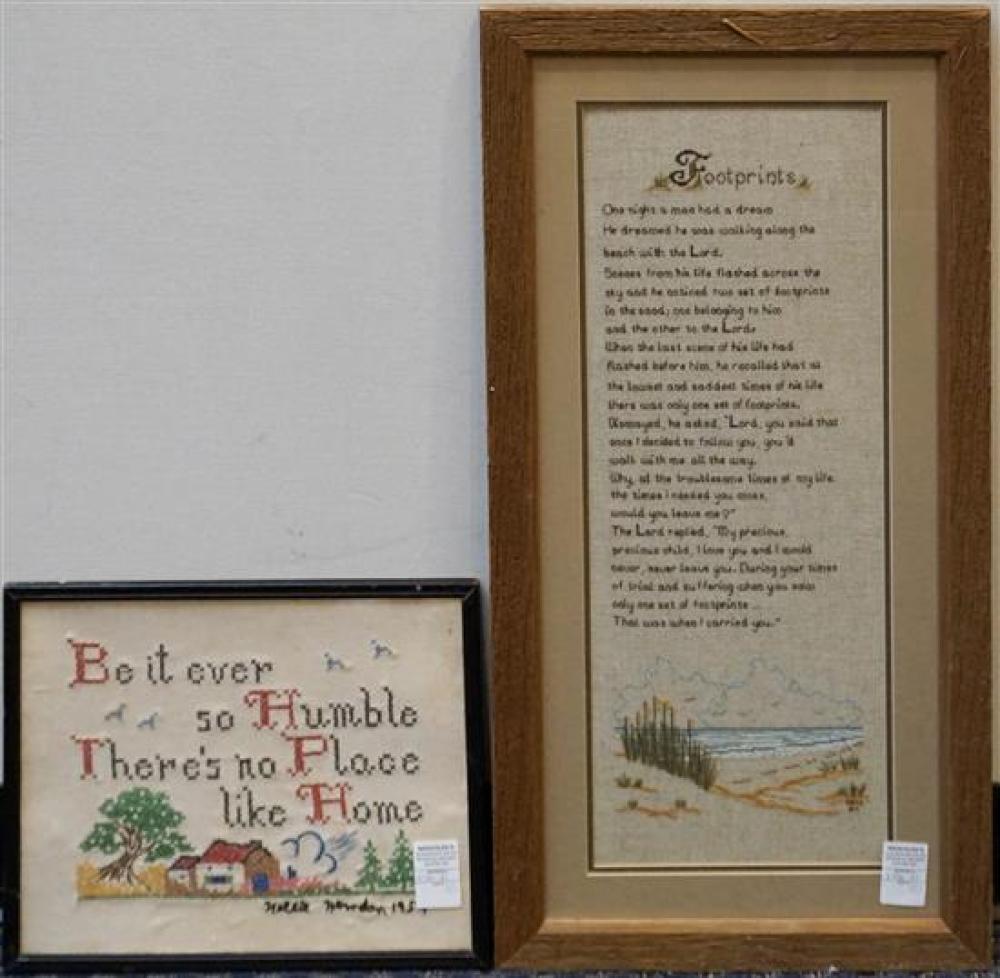 Be it ever
so Humble
There's no Place
like Home
1954
Footprints
One night a man had a dream
He dreamed he was walking along the
beach with the Lord.
Scenes from his life flashed across the
sky and he noticed two set of footprints
in the sand; one belonging to him
and the other to the Lord.
When the last scene of his life had
flashed before him, he recalled that at
the lowest and saddest times of his life
there was only one set of footprints.
Dismayed, he asked, "Lord, you said that
once I decided to follow you, you'd
walk with me all the way.
Why, at the troublesome times of my life
the times I needed you most,
would you leave me?"
The Lord replied, "My precious,
precious child, I love you and I would
never, never leave you. During your times
of trial and suffering when you saw
only one set of footprints ...
That was when I carried you."